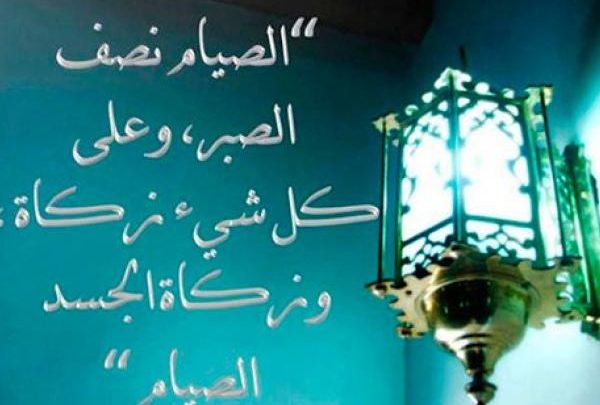 “الصيام نصف
الصبر، وعلى
كل شيء زكاة،
وزكاة الجسد
الصيام“